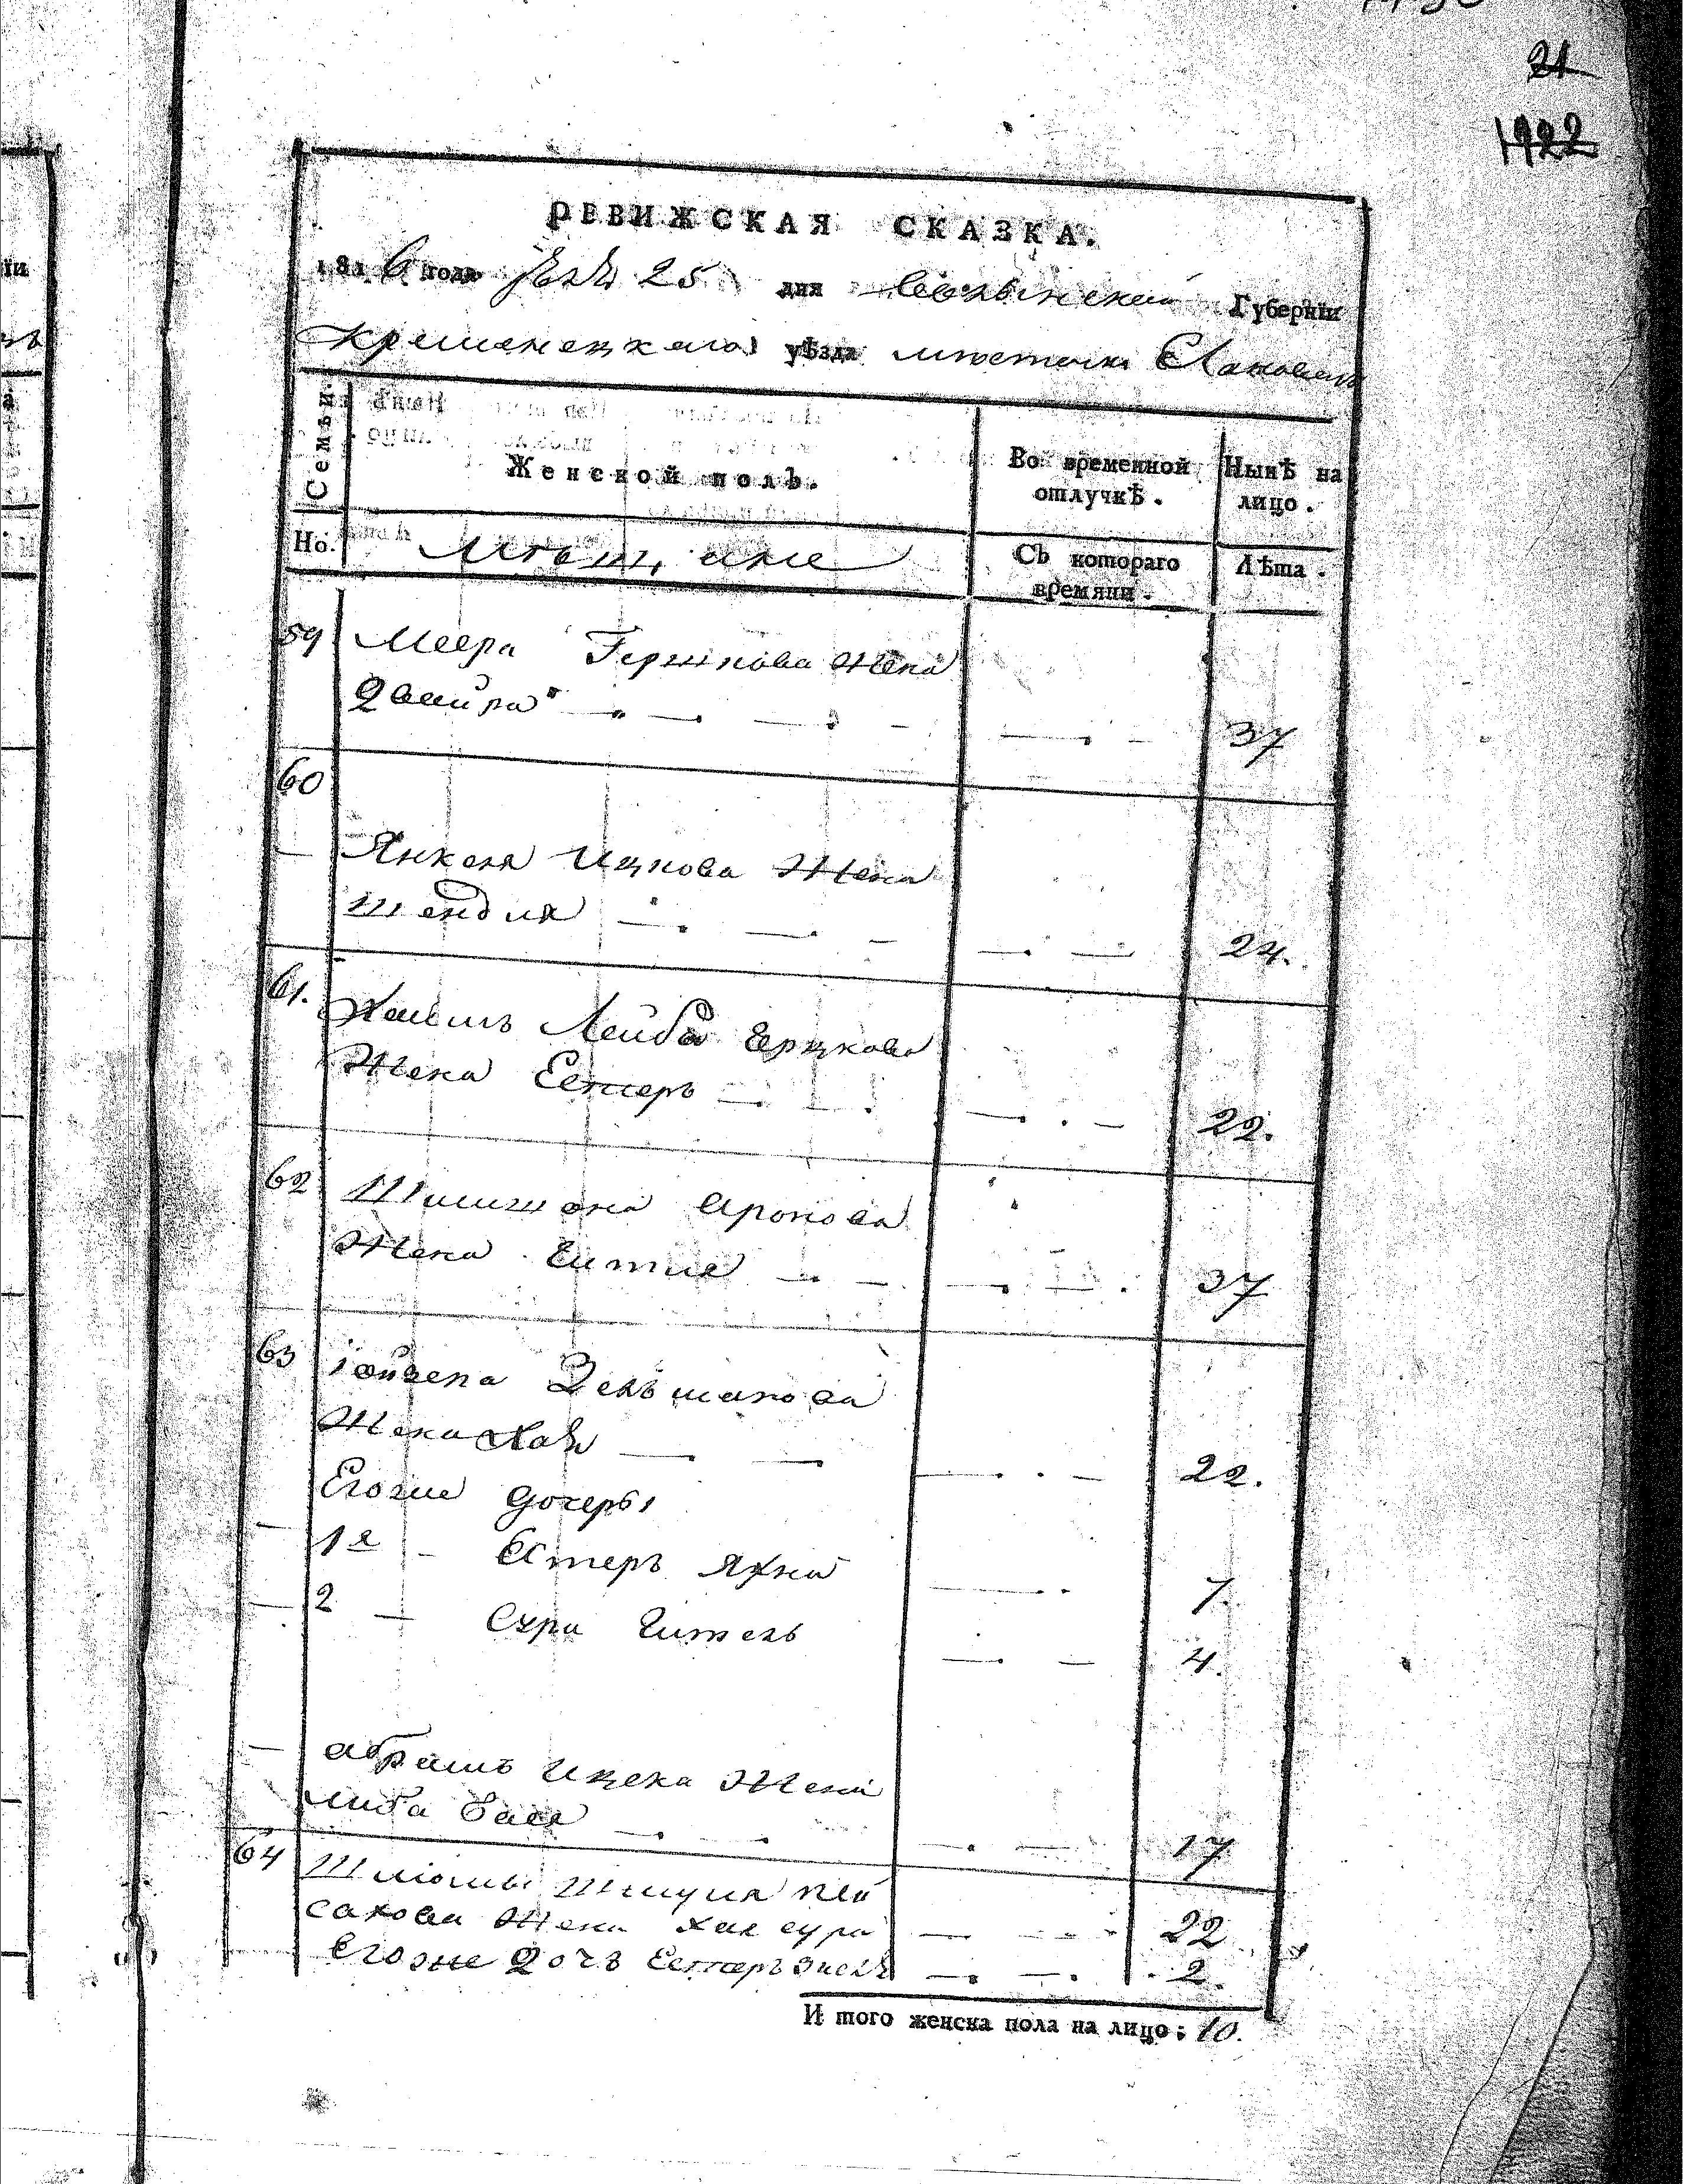 21
1922
РЕВИЖСКАЯ СКАЗКА.
1816 года 25 дня Волынской Губернiи
Кременецкаго уѣзда местечка Лановецъ
Семьи.
Женской полъ.
Во временной отлучкѣ.
Нынѣ на лицо.
Но.
Мещане
Съ котораго времяни.
Лѣта.
59 Меера Гершкова жена
Двойра 37
60
Янкеля Ицкова жена
Шендля 24.
61. Хаимъ Лейба Герцкова
жена Естеръ 22.
62 Шимшона Аронова
жена Гитля 37
63 Зельманова
жена Хая 22.
Егоже дочеры
1я Естеръ Яхна 7.
2 Сура Гитель 4.
Абрамъ Ицека жена
Либа Бася 17
64 Шлiомы Шмуля Пей
сахова жена Хая сура 22
Егоже дочъ Естеръ 2.
И того женска пола на лицо: 10.